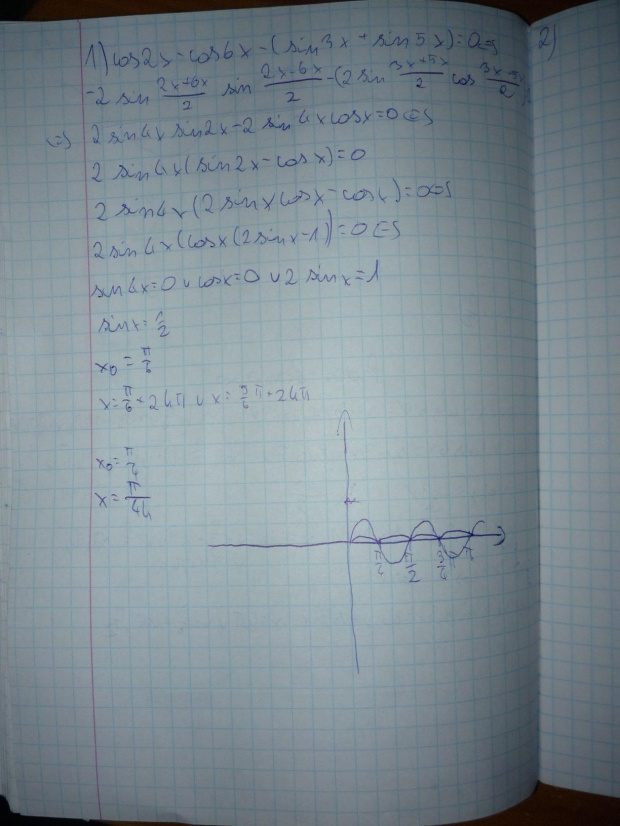 1) cos2x-cos6x-(sin3x+sin5x)=0⇔
-2 sin (2x+6x)/2 sin (2x-6x)/2 -(2sin (3x+5x)/2 cos (3x-5x)/2)
⇔ 2sin4x sin2x-2sin4xcosx=0⇔
2 sin4x(sin2x-cosx)=0
2 sin4x(2sinxcosx-cosx)=0⇔
2sin4x(cosx(2sinx-1))=0⇔
sin4x=0 ∪ cosx=0 ∪ 2 sinx=1
sinx=1/2
x₀=π/6
x=π/6+2kπ ∪ x=5/6π+2kπ
x₀=π/4
x=π/4k
π/4 π/2 3/4π π
2)